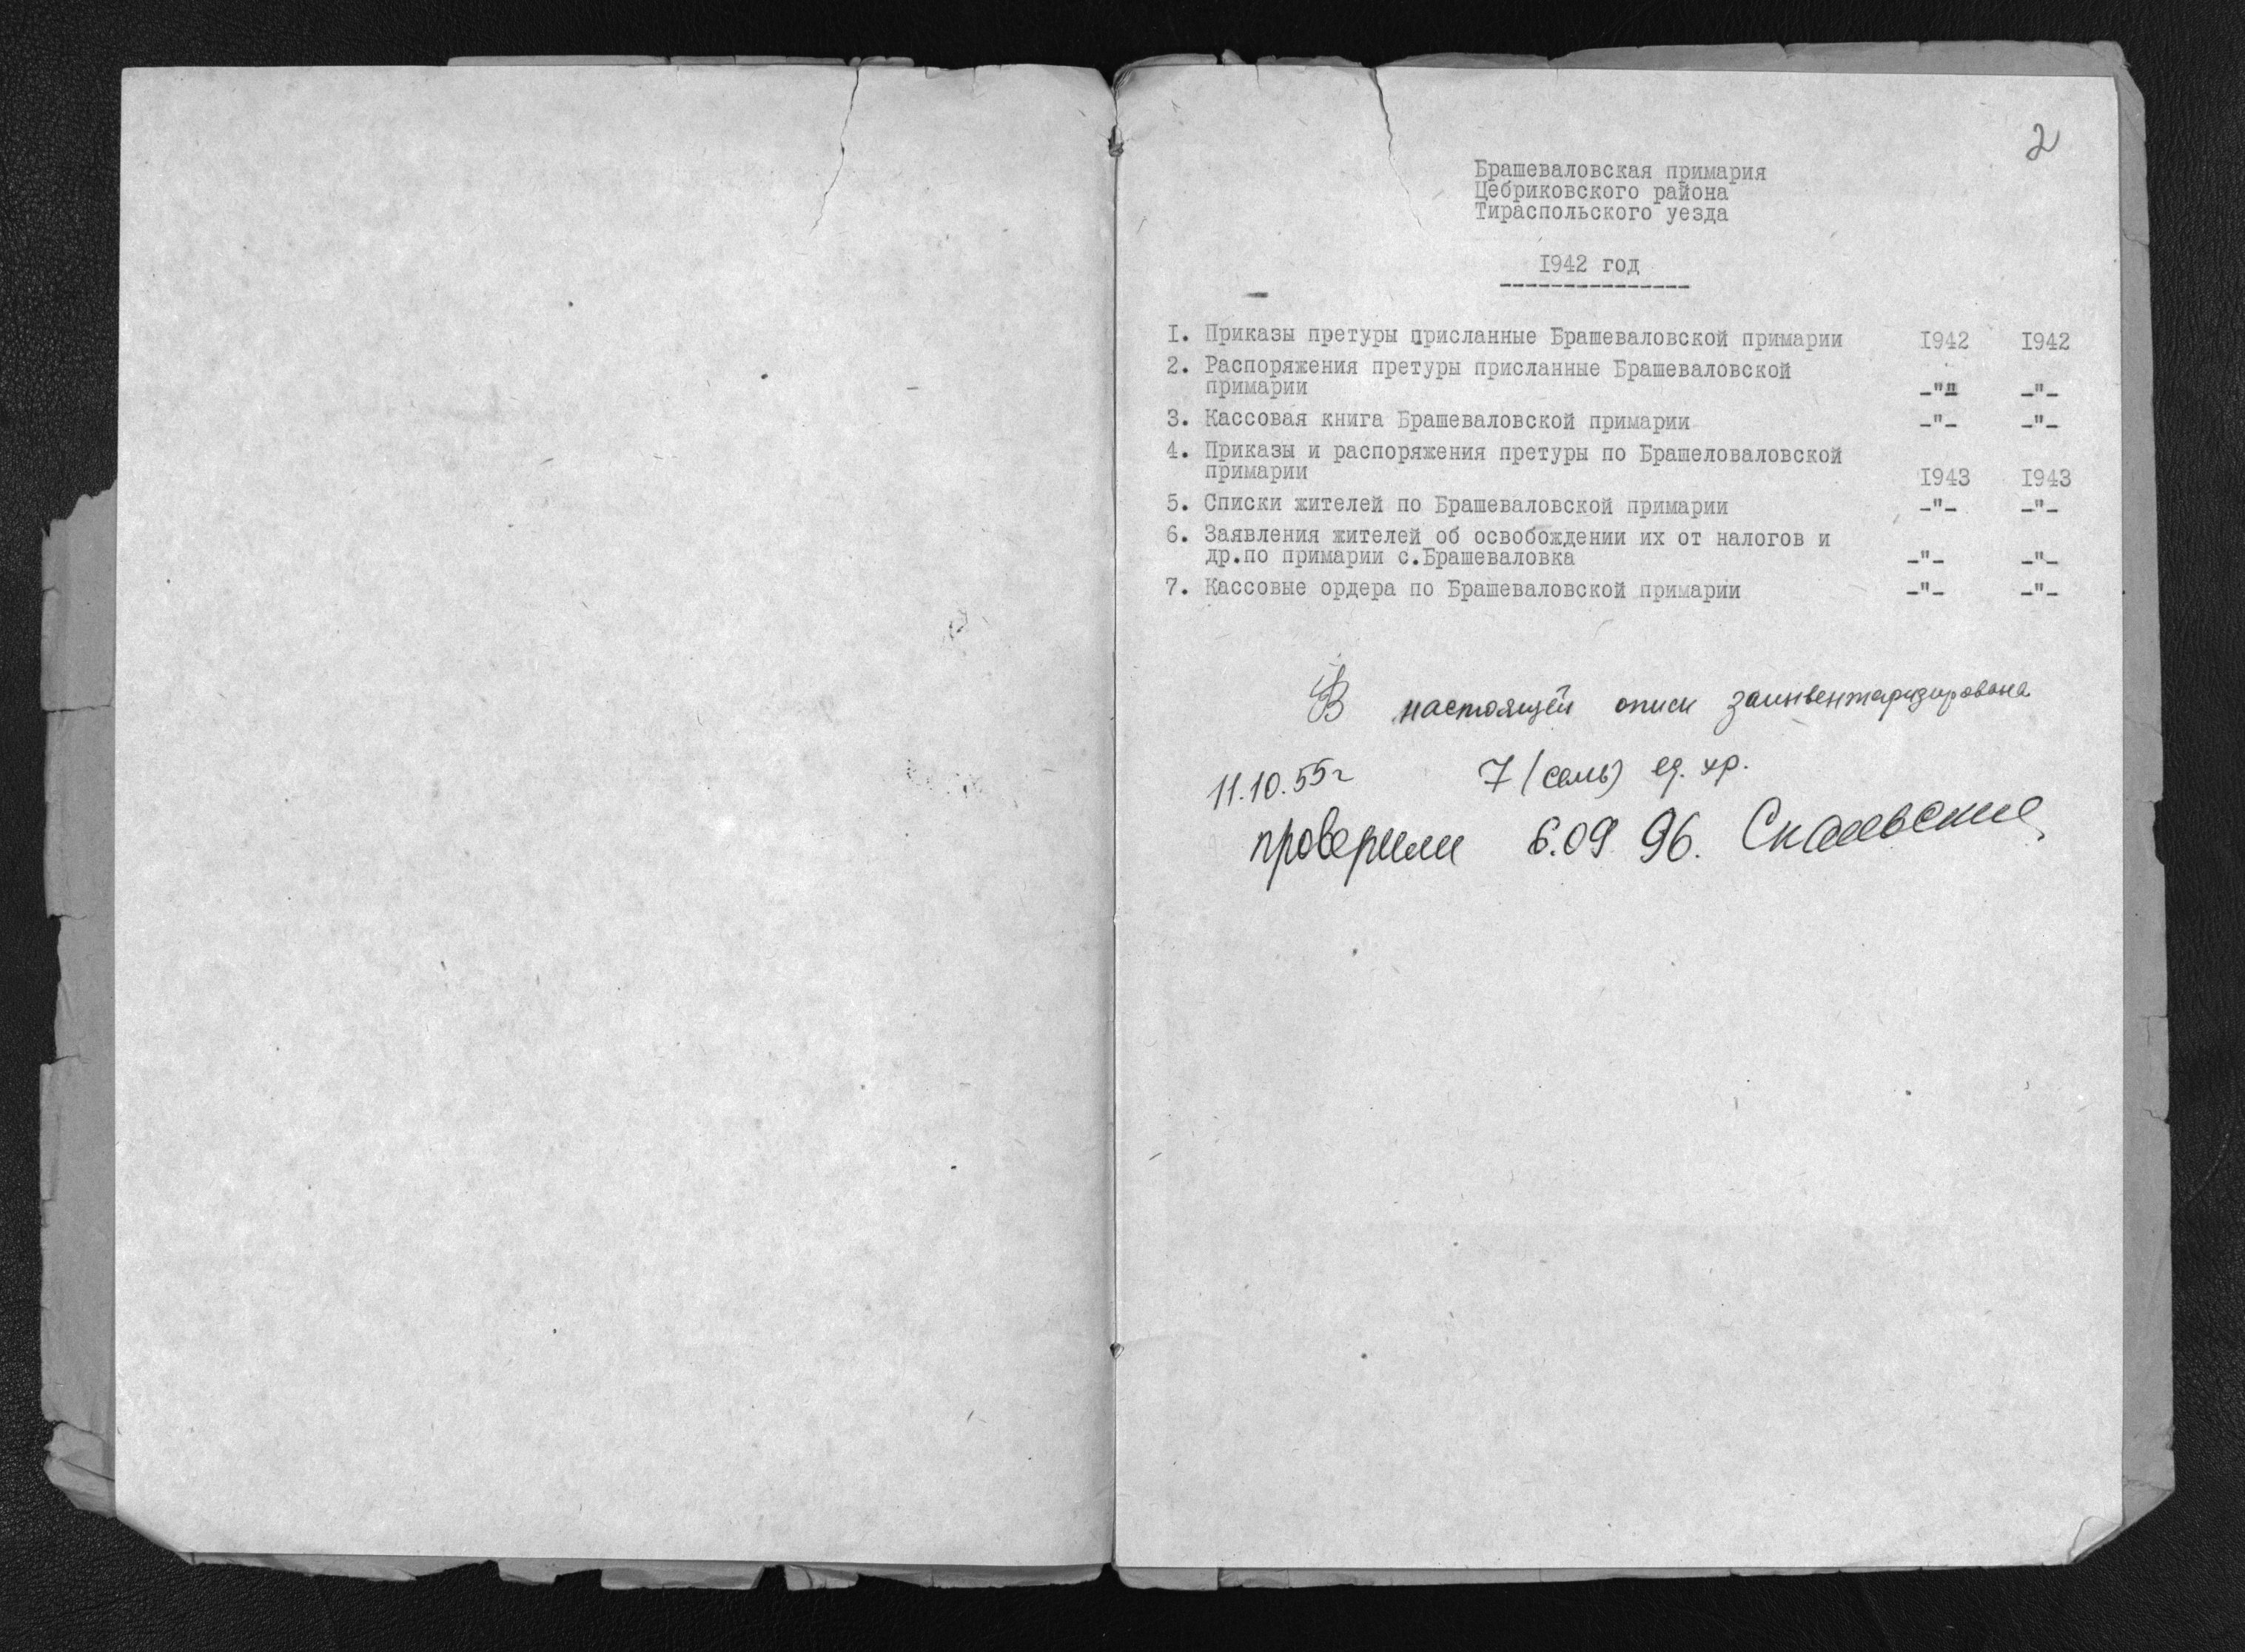 2
Брашеваловская примария
Цебриковского района
Тираспольского уезда
1942 год
---------------
I. Приказы претуры присланные Брашеваловской примарии I942 I942
2. Распоряжения претуры присланные Брашеваловской
примарии -"" -"-
3. Кассовая книга Брашеваловской примарии -"- -"-
4. Приказы и распоряжения претуры по Брашеловаловской
примарии I943 I943
5. Списки жителей по Брашеваловской примарии -"- -"-
6. Заявления жителей об освобождении их от налогов и
др.по примарии с.Брашеваловка -"- -"-
7. Кассовые ордера по Брашеваловской примарии -"- -"-
В настоящей описи заинвентаризирована
11.10.55г 7 (семь) ед. хр.
проверили 6.09 96.